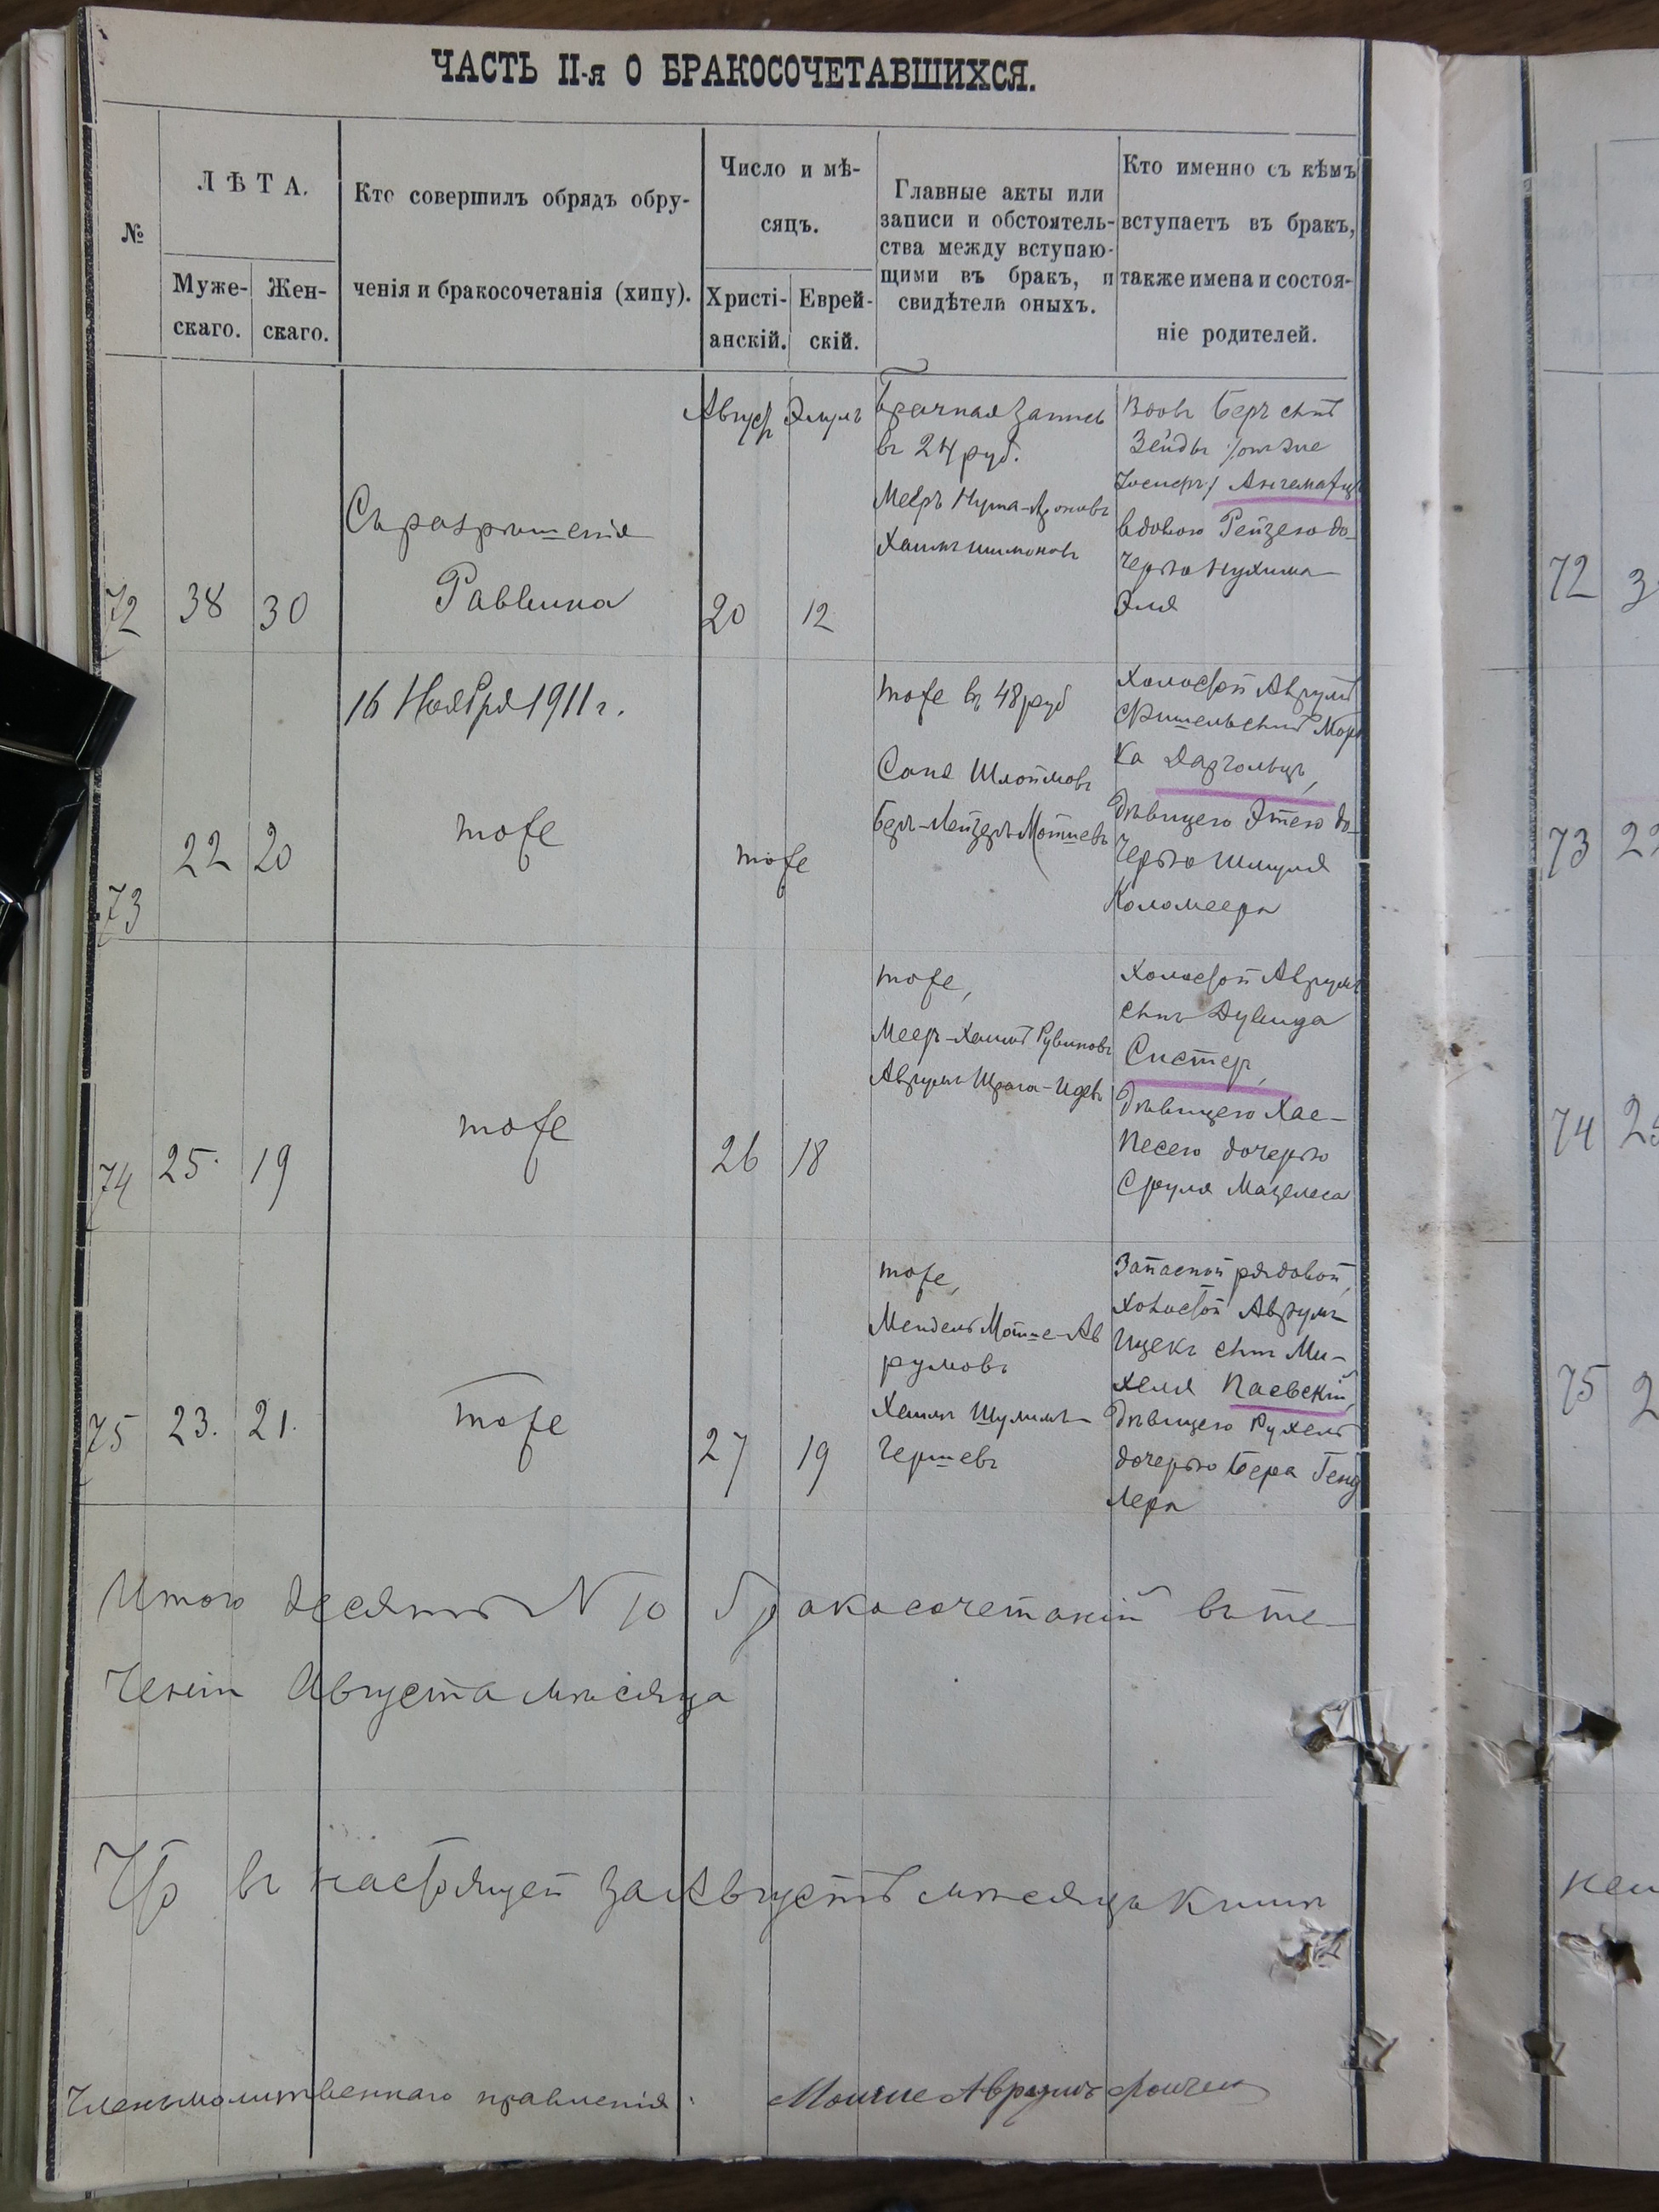 ЧАСТЬ II-я О БРАКОСОЧЕТАВШИХСЯ.
№
ЛѢТА.
Муже-
скаго.
Жен-
скаго.
Кто совершилъ обрядъ обру-
ченія и бракосочетанія (хипу).
Число и мѣ-
сяцъ.
Христі-
анскій.
Еврей-
скій.
Главные акты или
записи и обстоятель-
ства между вступаю-
щими въ бракъ, и
свидѣтели оныхъ.
Кто именно съ кѣмъ
вступаетъ въ бракъ,
также имена и состоя-
ніе родителей.
72
38
30
Съ разрѣшенія
Раввина
Август
20
Элулъ
12
Брачная запись
въ 24 руб.
Мееръ Нута-Ароновъ
Хаимъ Шимоновъ
Вдовъ Беръ сынъ
Зейды
вдовою Рейзею до-
черью Нухима-
Эля
16 Ноября 1911 г.
73
22
20
тоже
тоже
тоже въ 48 руб
Сана Шлоймовъ
Беръ-Лейзеръ Мотиевъ
Холостой Аврумъ
сынъ Мор
ка
дѣвицею Этею до-
черью Шмуля
Коломеера
74
25.
19
тоже
26
18
тоже,
Мееръ-Хаимъ Рувиновъ
Аврумъ Шрага-Идевъ
Холостой Аврумъ
сынъ Дувида
Систер,
дѣвицею Хае-
Песею дочерью
Сруля Мацелеса
75
23.
21.
тоже
27
19
тоже,
Мендель Мотие-Ав
румовъ
Хаимъ Шулимъ-
Гершевъ
Запасной рядовой,
холостой Аврумъ-
Ицекъ сынъ Ми-
хеля Паевскій,
дѣвицею Рухель
дочерью Бера Генд
лера
Итого десять N 10 бракосочетаній въ те-
ченіи Августа мѣсяца
Что въ настоящей за Августъ мѣсяцъ книгѣ
Члены молитвеннаго правленія:
Моше Аврумъ
72
3
73
22
74
25
75
2